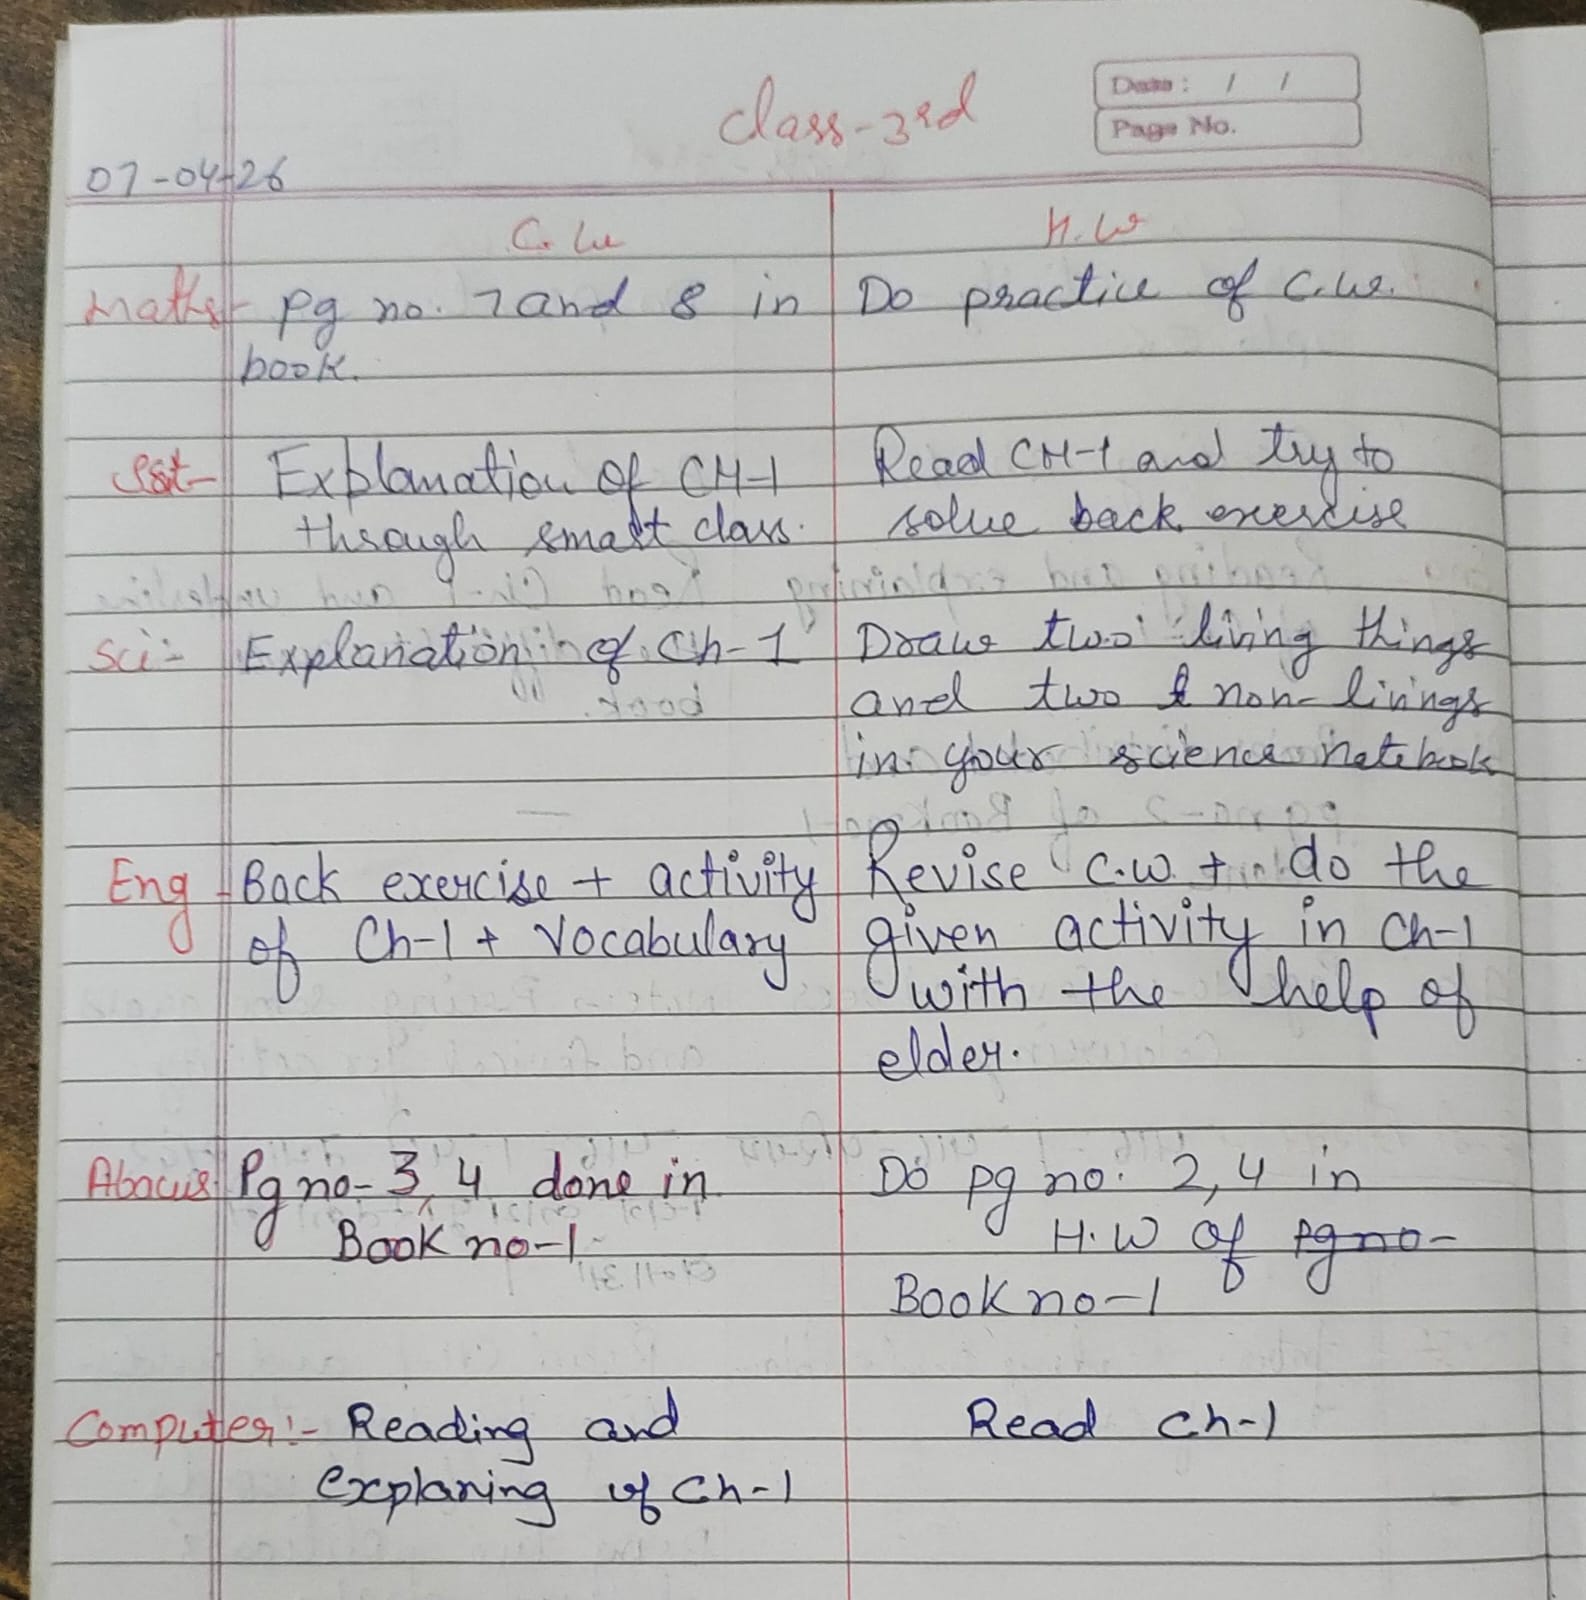 class-3rd
Date : / /
Page No.
07-04-26
C.W
H.W
Maths- pg no. 7 and 8 in
book.
Do practice of C.W.
Sst- Explanation of CH-1
through smart class.
Read CH-1 and try to
solve back exercise
Sci- Explanation of Ch-1
Draw two living things
and two non-livings
in your science notebook
Eng - Back exercise + activity
of Ch-1 + Vocabulary
Revise C.W + do the
given activity in Ch-1
with the help of
elder.
Abacus- Pg no- 3, 4 done in
Book no-1.
Do pg no. 2, 4 in
H.W of pg no-
Book no-1
Computer:- Reading and
explaning of Ch-1
Read Ch-1